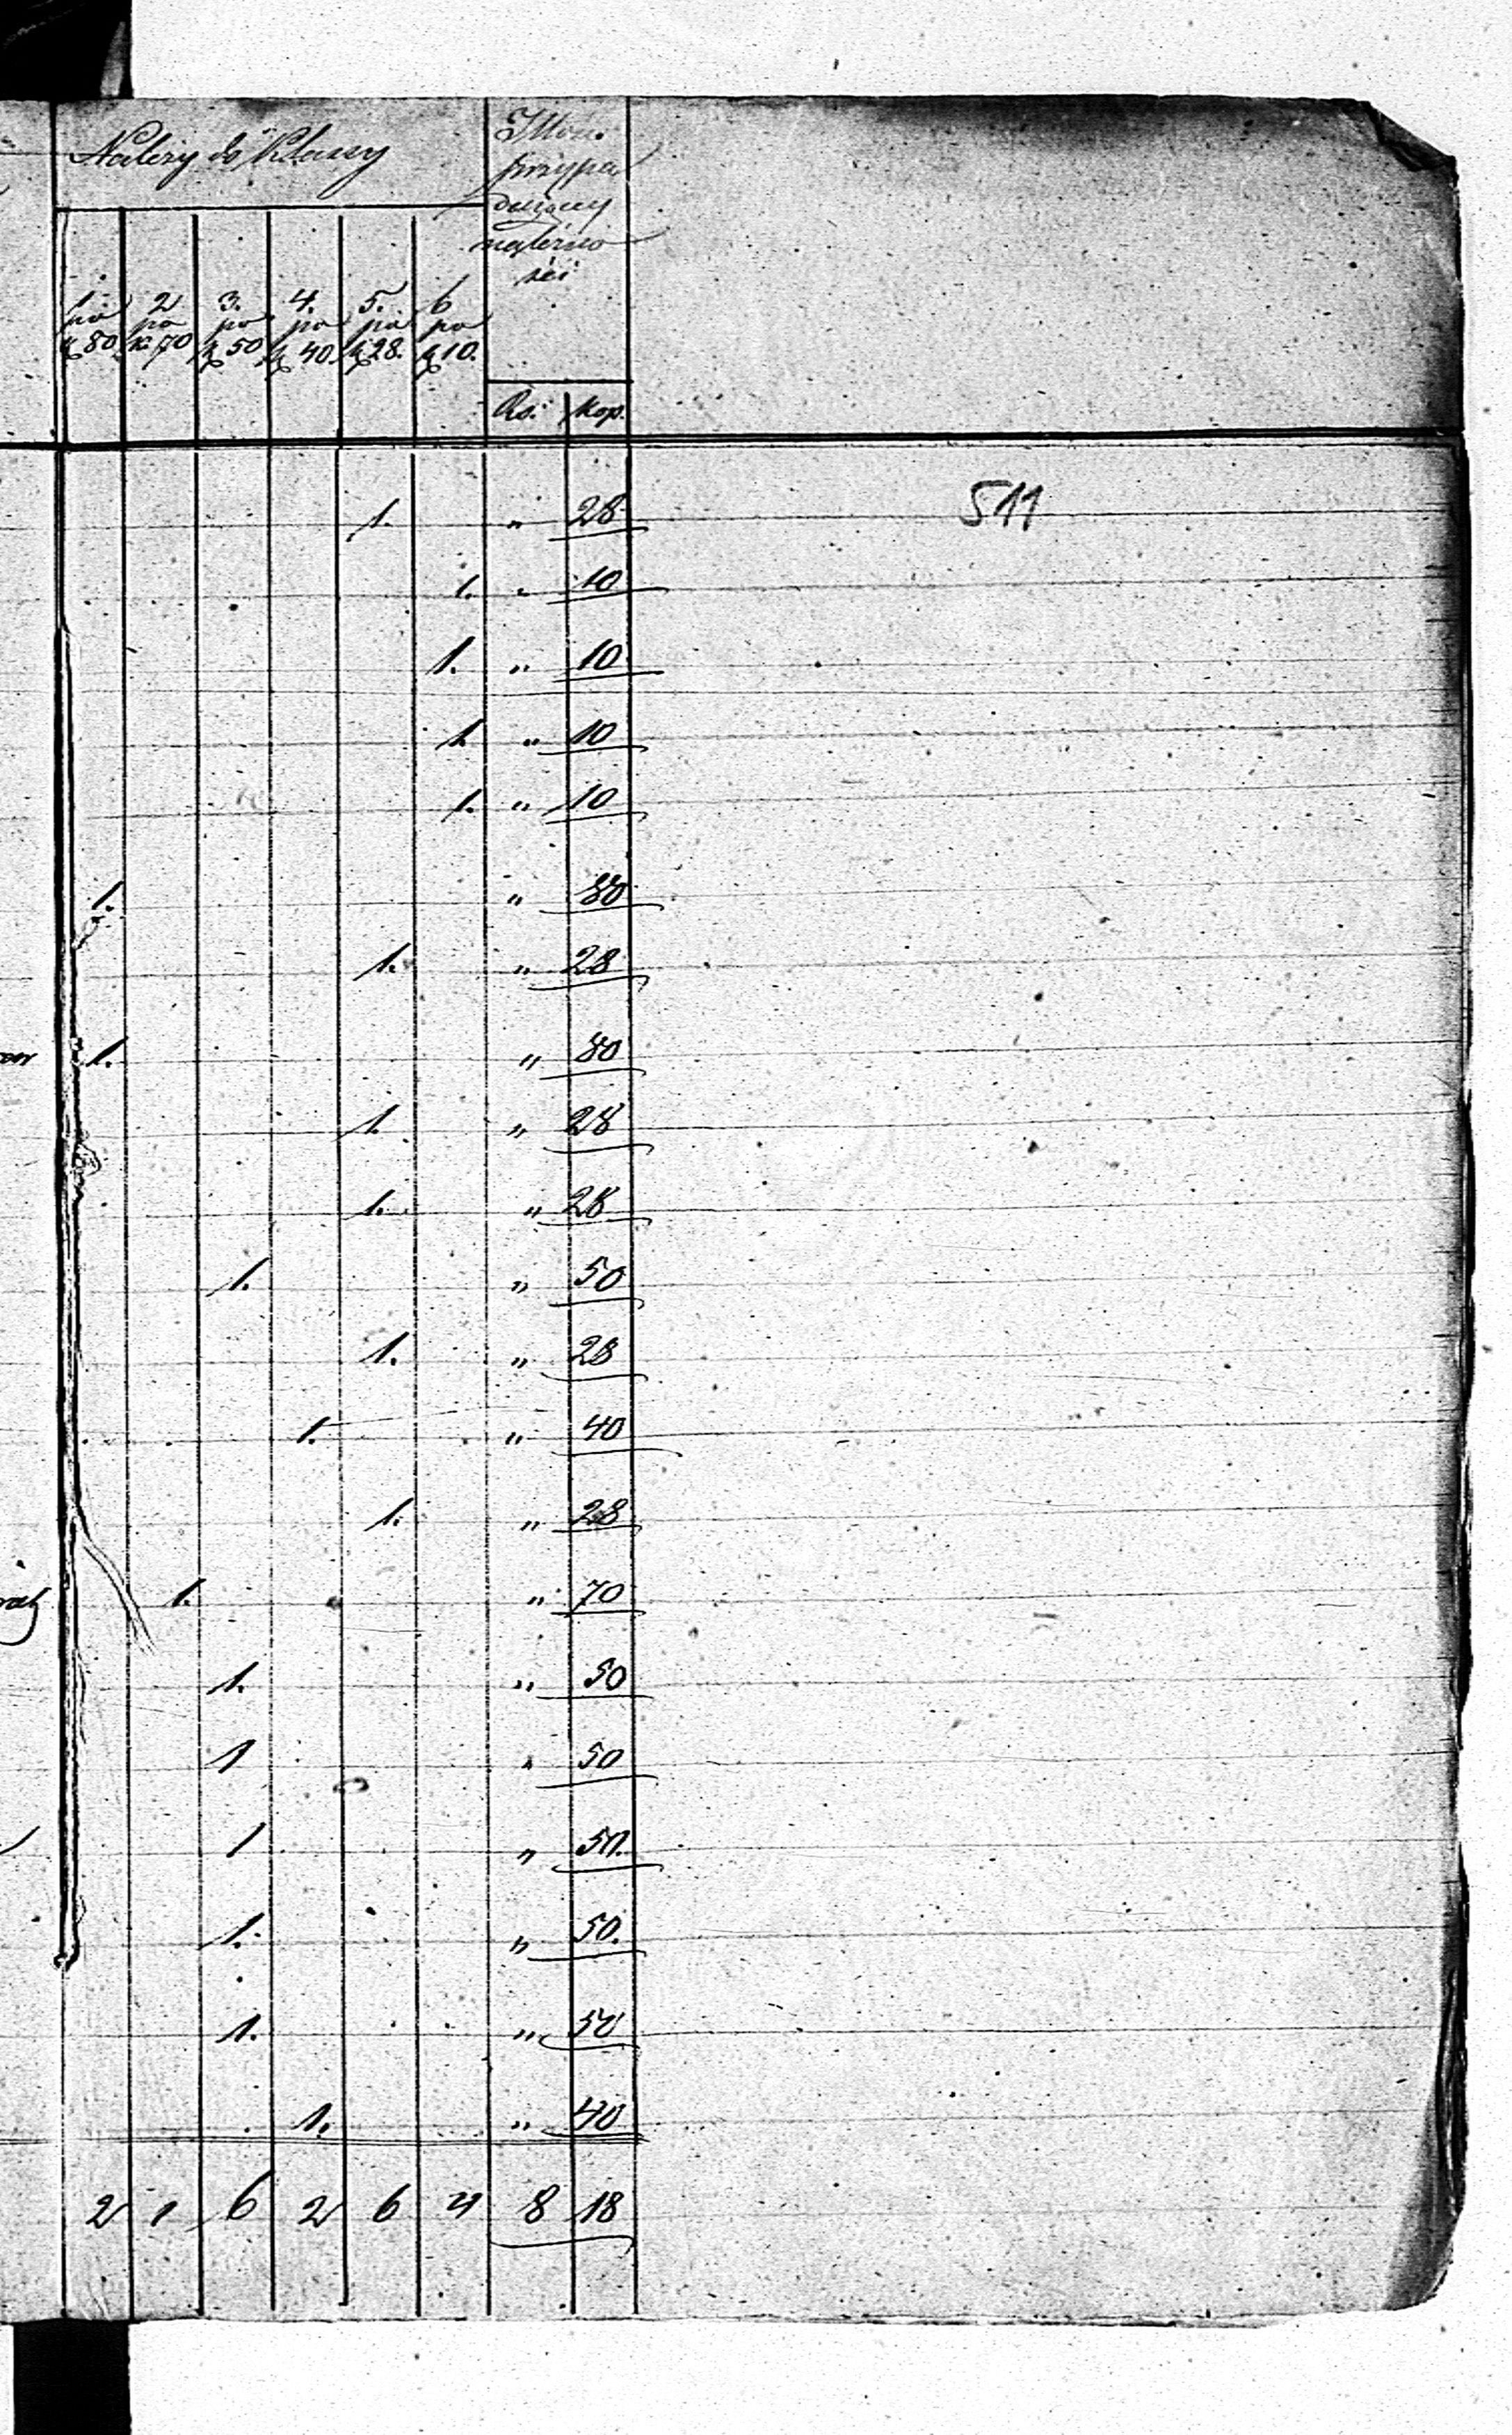 Należy do Klassy
Ilość
przypa
dającey
należno
ści
1. 2 3. 4. 5. 6
po po po po po po
k 80. k 70 k 50 k 40. k 28. k 10.
Rs. Kop.
1. " 28 511
1. " 10
1. " 10
1. " 10
1. " 10
1. " 80
1. " 28
1. " 80
1. " 28
1. " 28
1. " 50
1. " 28
1. " 40
1. " 28
1. " 70
1. " 50
1 " 50
1 " 50.
1. " 50.
1. " 50
1. " 40
2 1 6 2 6 4 8 18